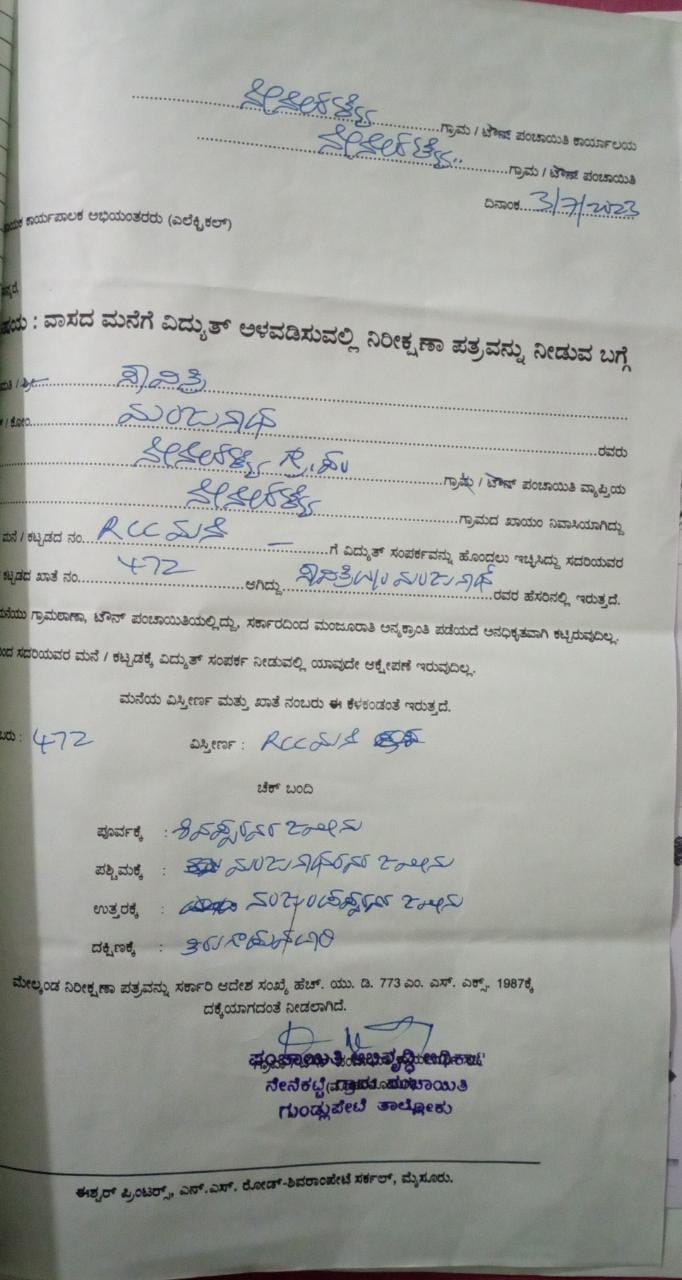 ನೇನೇಕಟ್ಟೆ ಗ್ರಾಮ / ಟೌನ್ ಪಂಚಾಯಿತಿ ಕಾರ್ಯಾಲಯ
ನೇನೇಕಟ್ಟೆ ಗ್ರಾಮ / ಟೌನ್ ಪಂಚಾಯಿತಿ
ದಿನಾಂಕ 3/7/2023
ಕಾರ್ಯಪಾಲಕ ಅಭಿಯಂತರರು (ಎಲೆಕ್ಟ್ರಿಕಲ್)
: ವಾಸದ ಮನೆಗೆ ವಿದ್ಯುತ್ ಅಳವಡಿಸುವಲ್ಲಿ ನಿರೀಕ್ಷಣಾ ಪತ್ರವನ್ನು ನೀಡುವ ಬಗ್ಗೆ
ಸಾವಿತ್ರಿ
/ ಕೋಂ ಮಂಜುನಾಥ ರವರು
ನೇನೇಕಟ್ಟೆ ಗ್ರಾ.ಪಂ ಗ್ರಾಮ / ಟೌನ್ ಪಂಚಾಯಿತಿ ವ್ಯಾಪ್ತಿಯ
ನೇನೇಕಟ್ಟೆ ಗ್ರಾಮದ ಖಾಯಂ ನಿವಾಸಿಯಾಗಿದ್ದು
ಮನೆ / ಕಟ್ಟಡದ ನಂ. RCC ಮನೆ – ಗೆ ವಿದ್ಯುತ್ ಸಂಪರ್ಕವನ್ನು ಹೊಂದಲು ಇಚ್ಛಿಸಿದ್ದು ಸದರಿಯವರ
ಕಟ್ಟಡದ ಖಾತೆ ನಂ. 472 ಆಗಿದ್ದು ಸಾವಿತ್ರಿ W/o ಮಂಜುನಾಥ್ ರವರ ಹೆಸರಿನಲ್ಲಿ ಇರುತ್ತದೆ.
ಗ್ರಾಮಠಾಣಾ, ಟೌನ್ ಪಂಚಾಯಿತಿಯಲ್ಲಿದ್ದು, ಸರ್ಕಾರದಿಂದ ಮಂಜೂರಾತಿ ಅನ್ಯಕ್ರಾಂತಿ ಪಡೆಯದೆ ಅನಧಿಕೃತವಾಗಿ ಕಟ್ಟಿರುವುದಿಲ್ಲ.
ಸದರಿಯವರ ಮನೆ / ಕಟ್ಟಡಕ್ಕೆ ವಿದ್ಯುತ್ ಸಂಪರ್ಕ ನೀಡುವಲ್ಲಿ ಯಾವುದೇ ಆಕ್ಷೇಪಣೆ ಇರುವುದಿಲ್ಲ.
ಮನೆಯ ವಿಸ್ತೀರ್ಣ ಮತ್ತು ಖಾತೆ ನಂಬರು ಈ ಕೆಳಕಂಡಂತೆ ಇರುತ್ತದೆ.
: 472 ವಿಸ್ತೀರ್ಣ : RCC ಮನೆ
ಚೆಕ್ ಬಂದಿ
ಪೂರ್ವಕ್ಕೆ : ಶಿವಪ್ಪನವರ ಜಮೀನು
ಪಶ್ಚಿಮಕ್ಕೆ : ಮಂಜುನಾಥನವರ ಜಮೀನು
ಉತ್ತರಕ್ಕೆ : ಜಮೀನು
ದಕ್ಷಿಣಕ್ಕೆ :
ಮೇಲ್ಕಂಡ ನಿರೀಕ್ಷಣಾ ಪತ್ರವನ್ನು ಸರ್ಕಾರಿ ಆದೇಶ ಸಂಖ್ಯೆ ಹೆಚ್. ಯು. ಡಿ. 773 ಎಂ. ಎಸ್. ಎಕ್ಸ್. 1987ಕ್ಕೆ
ದಕ್ಕೆಯಾಗದಂತೆ ನೀಡಲಾಗಿದೆ.
ಪಂಚಾಯಿತಿ ಅಭಿವೃದ್ಧಿ ಅಧಿಕಾರಿ
ನೇನೇಕಟ್ಟೆ ಗ್ರಾಮ ಪಂಚಾಯಿತಿ
ಗುಂಡ್ಲುಪೇಟೆ ತಾಲ್ಲೋಕು
ಈಶ್ವರ್ ಪ್ರಿಂಟರ್ಸ್, ಎನ್.ಎಸ್. ರೋಡ್-ಶಿವರಾಂಪೇಟೆ ಸರ್ಕಲ್, ಮೈಸೂರು.